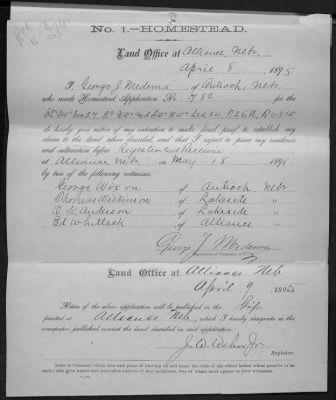 No. 1.—HOMESTEAD.
Land Office at Alliance, Nebr.
April 8 1895
I, George J. of Antioch, Nebr
who made Homestead Application No. 782 for the
do hereby give notice of my intention to make final proof to establish my
claim to the land above described, and that I expect to prove my residence
and cultivation before Register and Receiver
at Alliance Neb on May 18 1895
by two of the following witnesses:
George of Antioch Nebr
Thomas Wilkinson of Lakeside "
Anderson of Lakeside "
Ed Whitlock of Alliance "
George J.
Land Office at Alliance Neb
April 9 1895
Notice of the above application will be published in the
printed at Alliance Neb, which I hereby designate as the
newspaper published nearest the land described in said application.
J. W. Jr
Register.